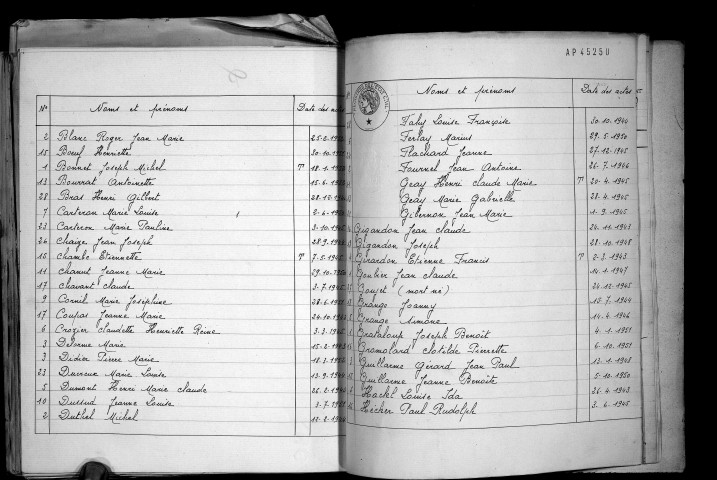 N° Noms et prénoms Date des actes
2 Blanc Roger Jean Marie
15 Boeuf Henriette
1 Bonnet Joseph Michel T
13 Bourrat Antoinette
28 Bras Henri Gilbert
7 Carteron Marie Louise
23 Carteron Marie Pauline
26 Chaize Jean Joseph
16 Chambe Etiennette T
11 Chanut Jeanne Marie
17 Chavant Claude
9 Cornil Marie Joséphine
17 Coupas Jeanne Marie
6 Crozier Claudette Henriette Reine
3 Delorme Marie
3 Didier Pierre Marie
23 Durieux Marie Louise
5 Dumont Henri Marie Claude
10 Dussud Jeanne Louise
2 Duthel Michel
AP 4525U
Noms et prénoms Date des actes
Fahy Louise Françoise 30.10.1940
Ferlay Marius 29.5.1950
Flachard Jeanne 27.12.1945
Fournel Jean Antoine 26.7.1946
Geay Henri Claude Marie T 20.4.1945
Geay Marie Gabrielle 28.4.1945
Gibernon Jean Marie 1.9.1945
Gigandon Jean Claude 24.11.1943
Gigandon Joseph 28.10.1948
Girardon Etienne Francis T 2.3.1943
Goubier Jean Claude 14.1.1947
Goujet (mort né) 24.12.1945
Grange Joanny 15.7.1944
Grange Simone 14.4.1946
Grataloup Joseph Benoît 4.1.1951
Gromolard Clotilde Pierrette 6.10.1951
Guillarme Gérard Jean Paul 13.1.1948
Guillarme Jeanne Benoîte 5.10.1950
Hackl Louise Ida 26.4.1943
Hecher Paul Rudolph 3.6.1945